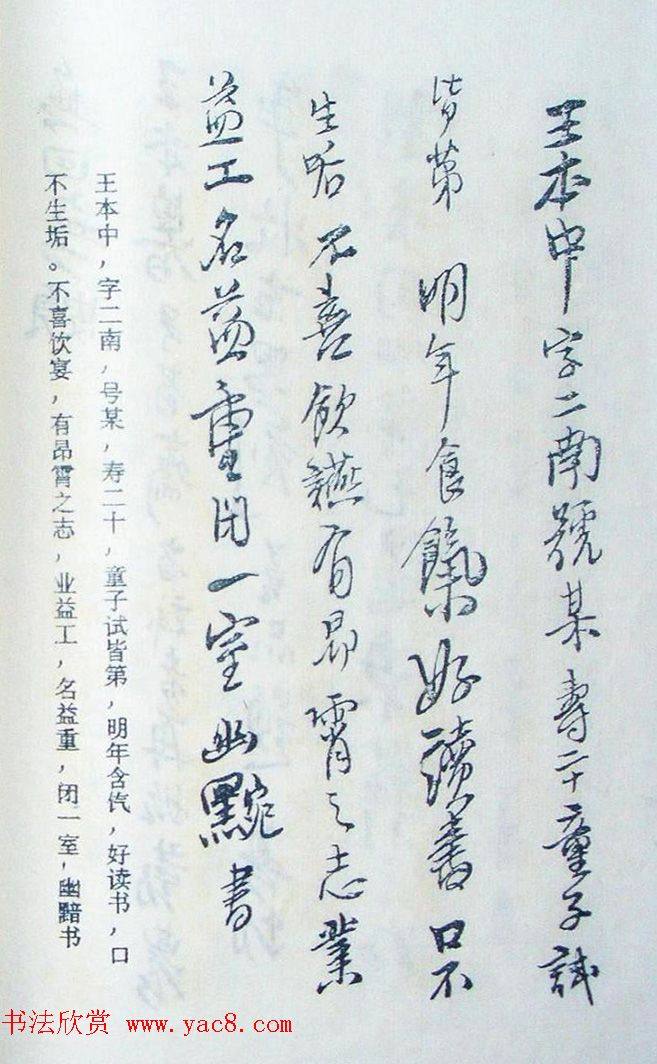 王本中字二南號某壽二十童子試
皆第 明年食餼好讀書口不
生垢不喜飲讌有昂霄之志業
益工名益重闭一室幽黯書
王本中，字二南，号某，寿二十，童子试皆第，明年含饩，好读书，口
不生垢。不喜饮宴，有昂霄之志，业益工，名益重，闭一室，幽黯书
书法欣赏 www.yac8.com